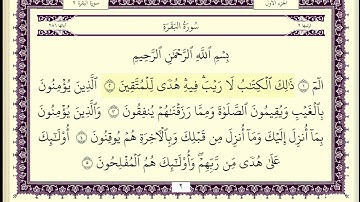 الجزء الأول
سورة البقرة ٢
سُورَةُ البَقَرَةِ
بِسْمِ اللَّهِ الرَّحْمَٰنِ الرَّحِيمِ
الٓمٓ ۝١ ذَٰلِكَ الْكِتَابُ لَا رَيْبَ ۛ فِيهِ ۛ هُدًى لِّلْمُتَّقِينَ ۝٢ الَّذِينَ يُؤْمِنُونَ
بِالْغَيْبِ وَيُقِيمُونَ الصَّلَوٰةَ وَمِمَّا رَزَقْنَٰهُمْ يُنفِقُونَ ۝٣ وَالَّذِينَ يُؤْمِنُونَ
بِمَآ أُنزِلَ إِلَيْكَ وَمَآ أُنزِلَ مِن قَبْلِكَ وَبِالْآخِرَةِ هُمْ يُوقِنُونَ ۝٤ أُولَٰٓئِكَ
عَلَىٰ هُدًى مِّن رَّبِّهِمْ ۖ وَأُولَٰٓئِكَ هُمُ الْمُفْلِحُونَ ۝٥
٢